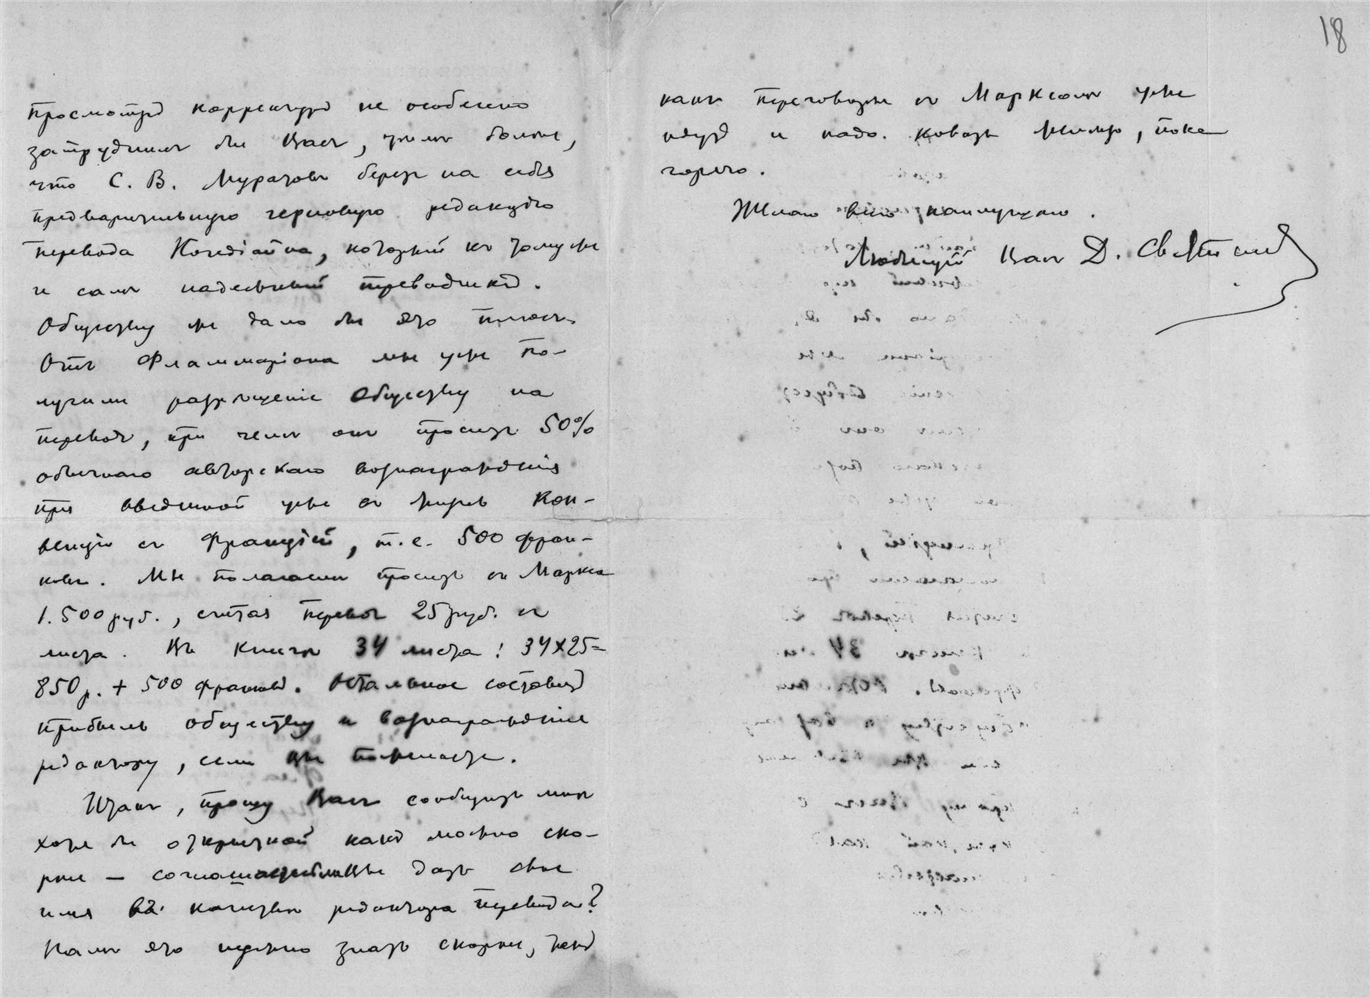 18
просмотръ корректуръ не особенно
затруднилъ бы Васъ, тѣмъ болѣе,
что С. В. Муратовъ беретъ на себя
предварительную черновую редакцію
перевода, который къ тому же
и самъ надежный переводчикъ.
Обществу же дало бы это
Отъ Фламмаріона мы уже по-
лучили разрѣшеніе Обществу на
переводъ, при чемъ онъ проситъ 50%
обычнаго авторскаго вознагражденія
при введенной уже въ жизнь Кон-
венціи съ Франціей, т.е. 500 фран-
ковъ. Мы полагаемъ просить съ Маркса
1.500 руб., считая переводъ 25 руб. съ
листа. Въ книгѣ 34 листа: 34х25=
850 р. + 500 франковъ. Остальное составитъ
прибыль обществу и вознагражденіе
редактору, если Вы пожелаете.
Итакъ, прошу Васъ сообщить мнѣ
хотя бы открыткой какъ можно ско-
рѣе — согласны ли Вы дать свое
имя въ качествѣ редактора перевода?
Намъ это нужно знать скорѣе, такъ
какъ переговоры съ Марксомъ уже
идутъ и надо ковать желѣзо, пока
горячо.
Желаю всего наилучшаго.
Любящій Васъ Д. Святскій